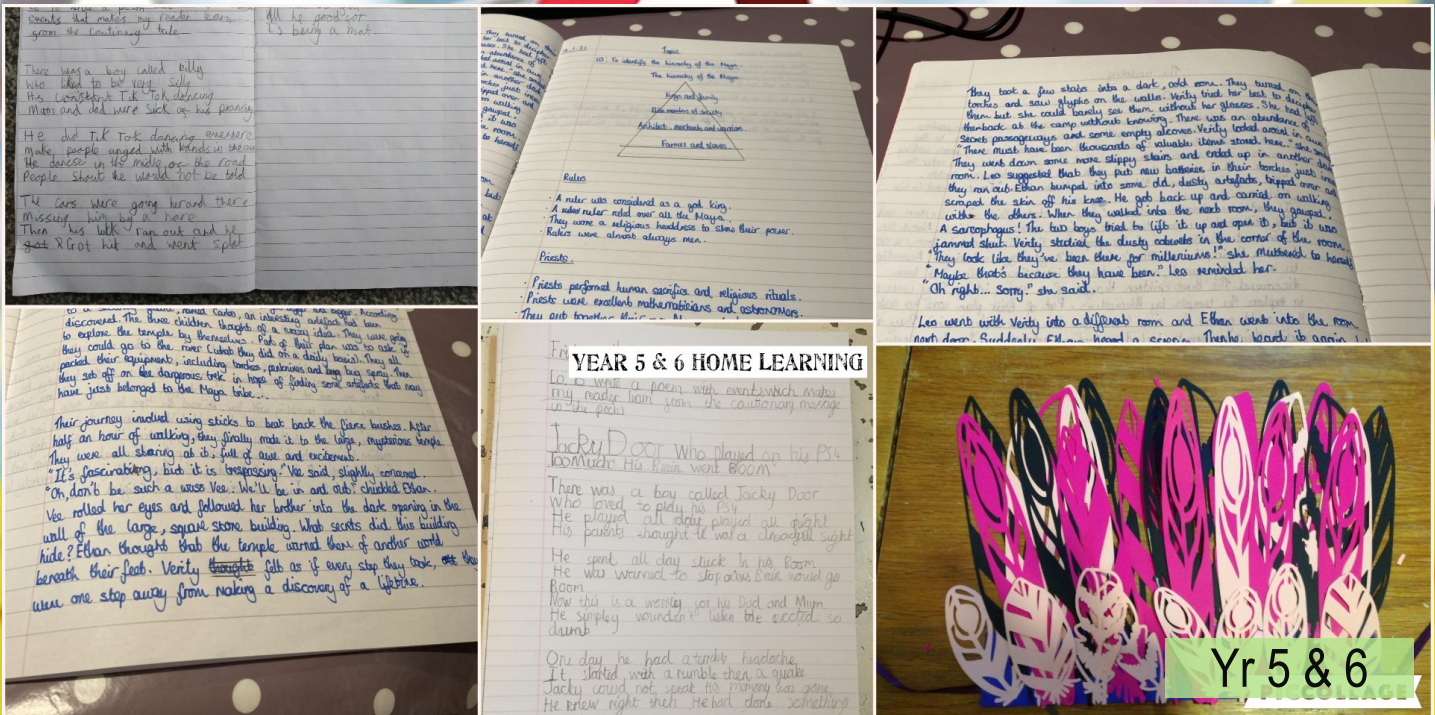 events that makes my reader learn
from the Cautinary tale
All he good for
is being a mat.
There was a boy called billy
Who liked to be very Silly
His constant Tik Tok dancing
Mum and dad were Sick of his prancing
He did Tik Tok dancing
Make people anged with hands in the air
He dancse in the midle of the road
People shout he would not be told
The cars were going her and there
Missing him by a hare
Then his luck ran out and he
Got hit and went splat
Topic
LO: To identify the hierarchy of the Maya.
The hierarchy of the Maya
Kings and family
Elite members of society
Architect, merchants and warriors
Farmers and slaves
Rules
· A ruler was considered as a god king.
· A ruler ruled over all the Maya.
· They wore a religious headdress to show their power.
· Rulers were almost always men.
Priests.
· Priests performed human sacrifice and religious rituals.
· Priests were excellent mathematicians and astronomers.
They took a few stabs into a dark, cold room. They turned on the
torches and saw glyphs on the walls. Verity tried her best to decipher
them but she could barely see them without her glasses. She had left
them back at the camp without knowing. There was an abundance of
secret passageways and some empty alcoves. Verity looked around in awe.
"There must have been thousands of valuable items stored here." she said
They went down some more slippy stairs and ended up in another dark
room. Leo suggested that they put new batteries in their torches just in
they ran out. Ethan bumped into some old, dusty artefacts, tripped over and
scraped the skin off his knee. He got back up and carried on walking
with the others. When they walked into the next room, they gasped.
A sarcophagus! The two boys tried to lift it up and open it, but it was
jammed shut. Verity studied the dusty cobwebs in the corner of the room.
"They look like they've been there for milleniums!" she muttered to herself
"Maybe that's because they have been." Leo reminded her.
"Oh right... Sorry." she said.
Leo went with Verity into a different room and Ethan went into the room
next door. Suddenly Ethan heard a
named Carlos, an interesting artefact had been
discovered. The three children thought of a crazy idea. They were going
to explore the temple by themselves. Part of their plan was to ask if
they could go to the river (which they did on a daily basis). They all
packed their equipment, including torches, and bug spray. Then
they set off on the dangerous trek in hope of finding some artefacts that may
have just belonged to the Maya tribe...
Their journey involved using sticks to beat back the fierce bushes. After
half an hour of walking, they finally made it to the large, mysterious temple.
They were all staring at it, full of awe and excitement.
"It's fascinating, but it is trespassing." Vee said, slightly concerned.
"Oh, don't be such a wuss Vee. We'll be in and out." chuckled Ethan.
Vee rolled her eyes and followed her brother into the dark opening in the
wall of the large, square stone building. What secrets did this building
hide? Ethan thought that the temple warned them of another world
beneath their feet. Verity thought felt as if every step they took, they
were one step away from making a discovery of a lifetime.
YEAR 5 & 6 HOME LEARNING
LO To write a poem with events which makes
my reader learn from the cautionary message
in the poem
Jacky Door Who played on his PS4
Too Much His Brain went Boom
There was a boy called Jacky Door
Who loved to play his PS4
He played all day, played all night
His parents thought it was a dreadful sight
He spent all day stuck in his Room
He was warned to stop or his Brain would go
Boom
Now this is a worrley for his Dad and Mum
He simpley wouldn't listen he acted so
dumb
One day he had a terrible headache
It started with a rumble then a quake
Jacky could not speak his memory was gone
He knew right then He had done something
Yr 5 & 6
PIC COLLAGE